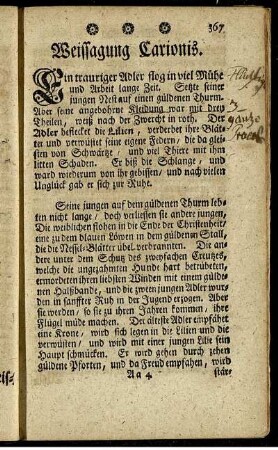 367
Weissagung Carionis.
Ein trauriger Adler flog in viel Mühe
und Arbeit lange Zeit. Setzte seiner
jungen Nest auf einen güldenen Thurm.
Aber seine angebohrne Kleidung war mit drey
Theilen, weiß nach der Zwercht in roth. Der
Adler beflecket die Lilien, verderbet ihre Blät-
ter und verwüstet seine eigene Federn, die da glei-
sten von Schwärtze, und viel Thiere mit ihm
litten Schaden. Er biß die Schlange, und
ward wiederum von ihr gebissen, und nach vielen
Unglück gab er sich zur Ruhe.
Seine jungen auf dem güldenen Thurm leb-
ten nicht lange, doch verliessen sie andere jungen,
Die weiblichen flohen in die Ende der Christenheit,
eine zu dem blauen Löwen in dem güldenen Stall,
die die Nessel-Blätter übel verbrannten. Die an-
dere unter dem Schutz des zweyfachen Creutzes,
welche die ungezähmten Hunde hart betrübeten,
ermordeten ihren liebsten Winden mit einem gülde-
nen Halßbande, und die zween jungen Adler wur-
den in sanffter Ruh in der Jugend erzogen. Aber
sie werden, so sie zu ihren Jahren kommen, ihre
Flügel müde machen. Der älteste Adler empfähet
eine Krone, wird sich legen in die Lilien und die
verwüsten, und wird mit einer jungen Lilie sein
Haupt schmücken. Er wird gehen durch zehen
güldene Pforten, und da Freud empfahen, wird
Aa 4
stär-
3
gantze